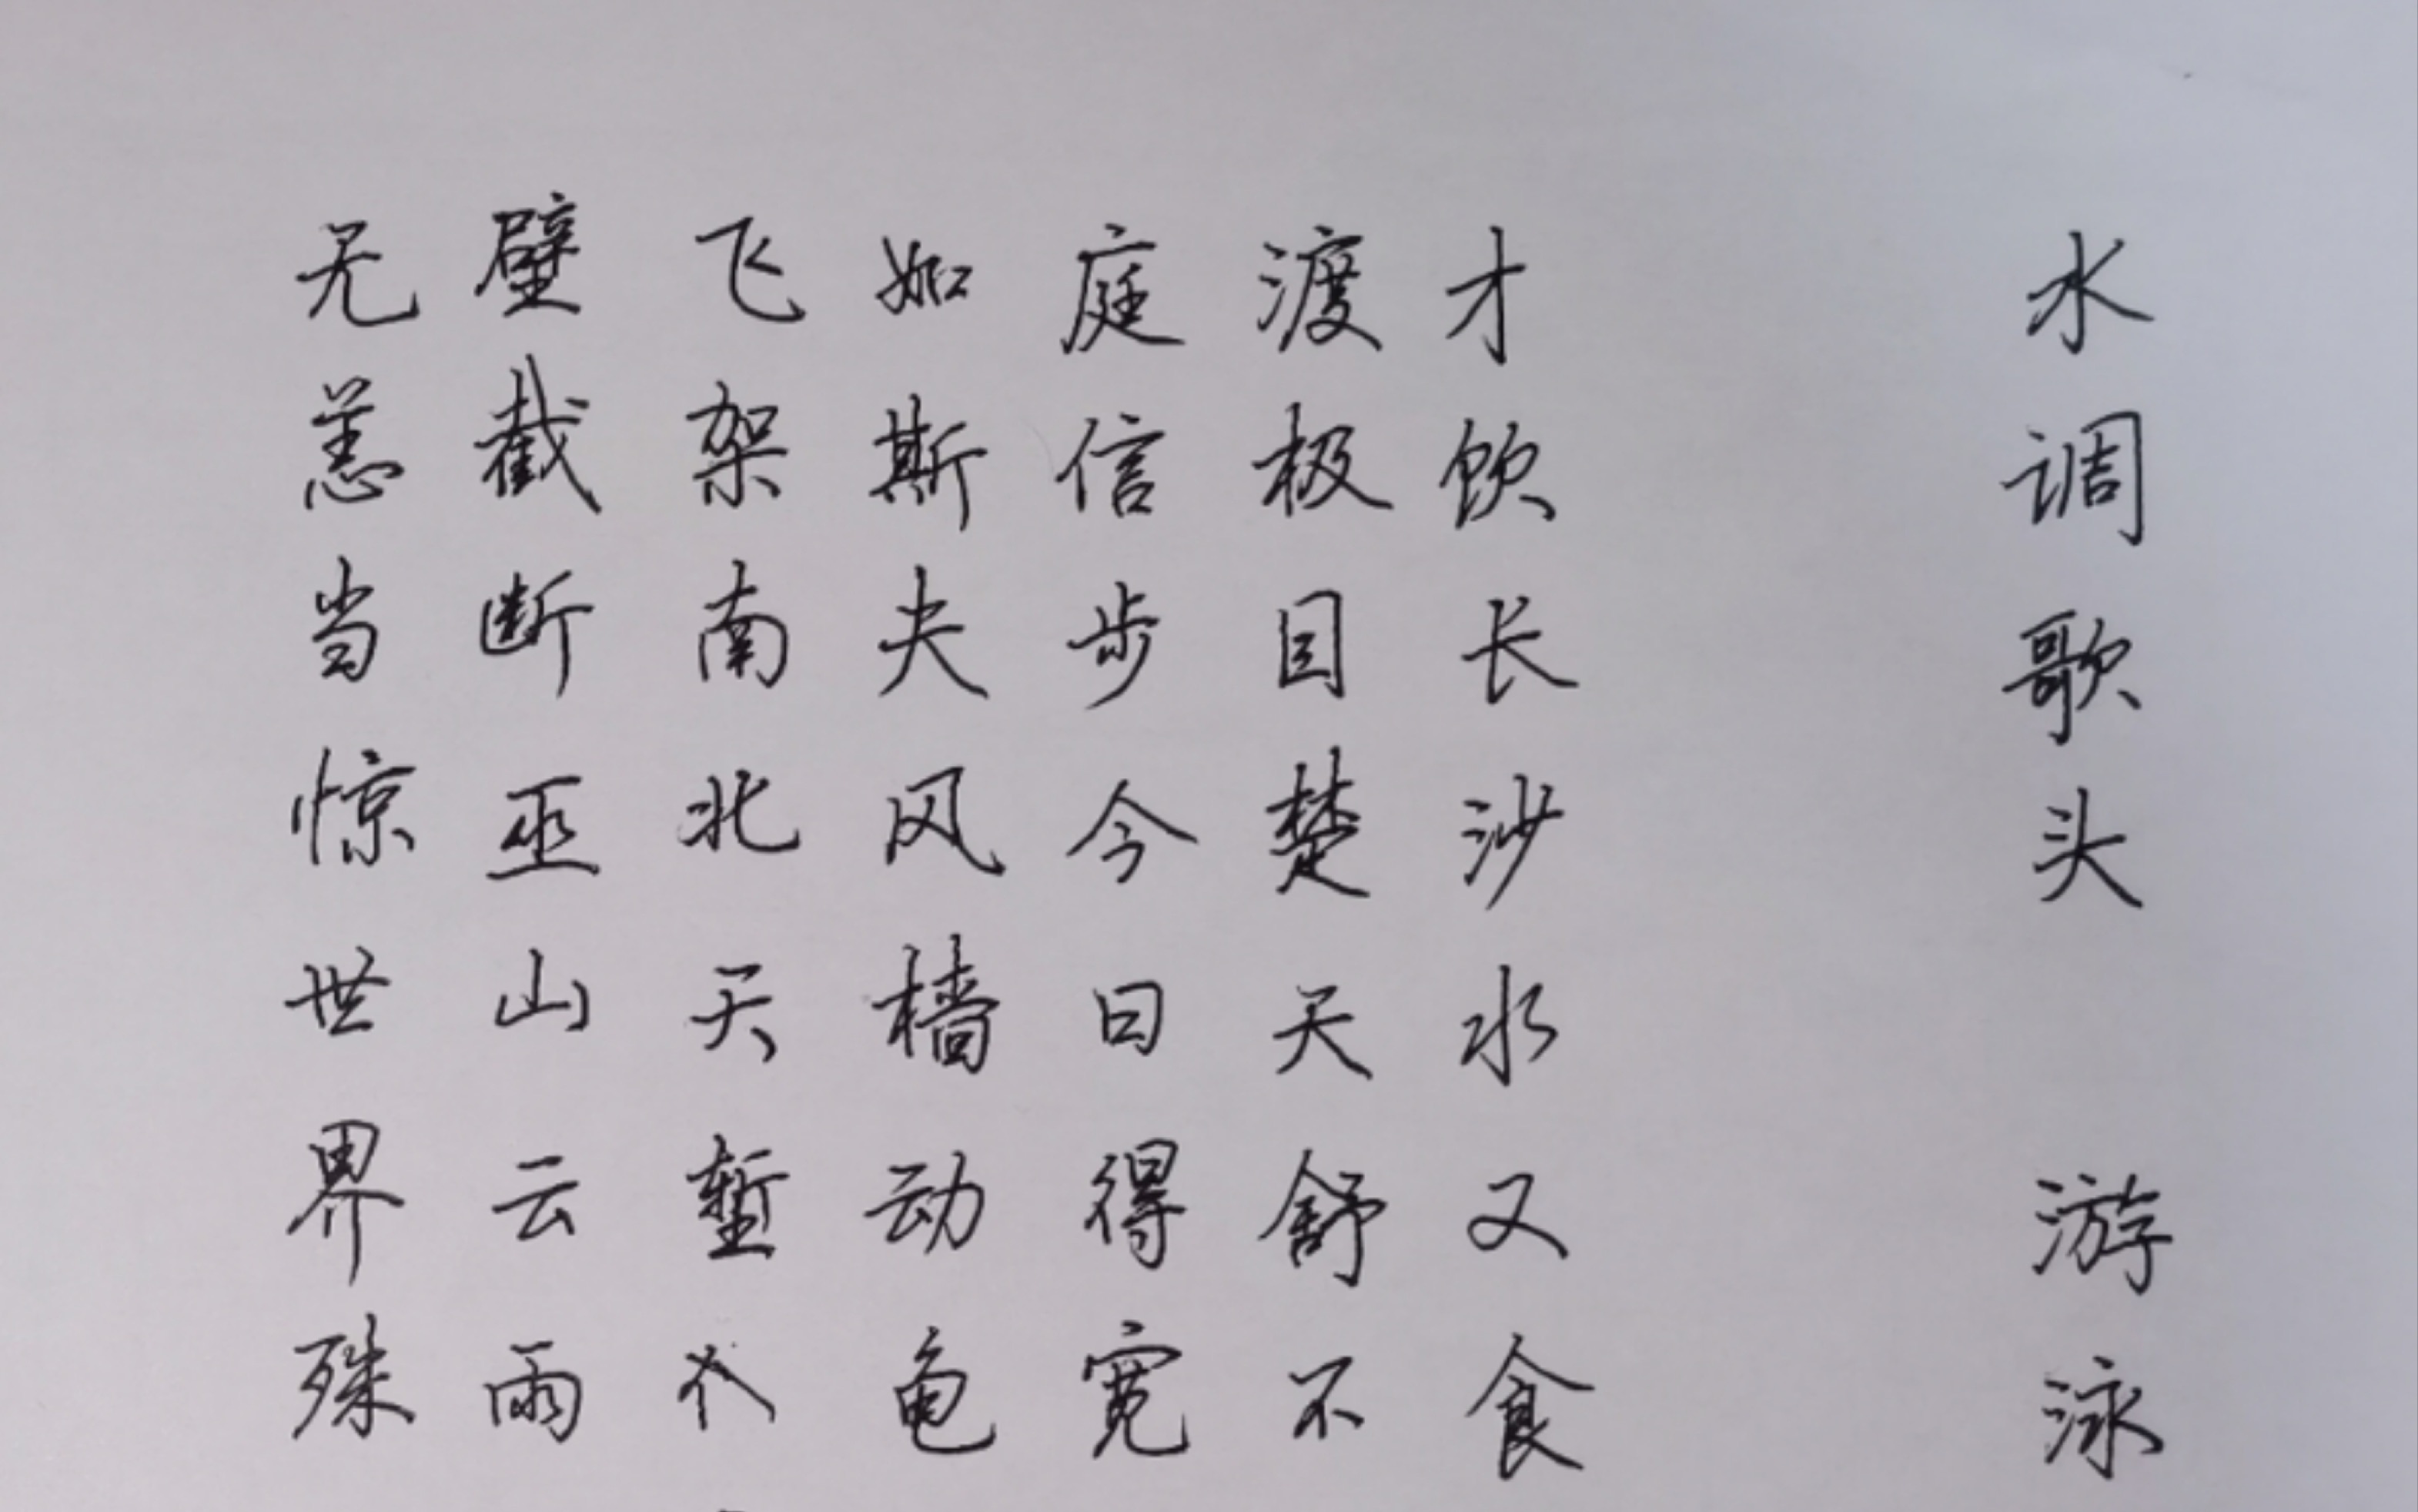 水调歌头 游泳
才饮长沙水又食
渡极目楚天舒不
庭信步今日得宽
如斯夫风樯动龟
飞架南北天堑
壁截断巫山云雨
无恙当惊世界殊